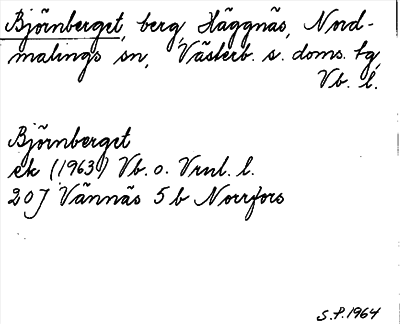 Björnberget, berg, Häggnäs, Nord-
malings sn, Västerb. s. doms. tg,
Vb. l.
Björnberget
ek (1963) Vb. o. Vrml. l.
20J Vännäs 5b Norrfors
S.P. 1964